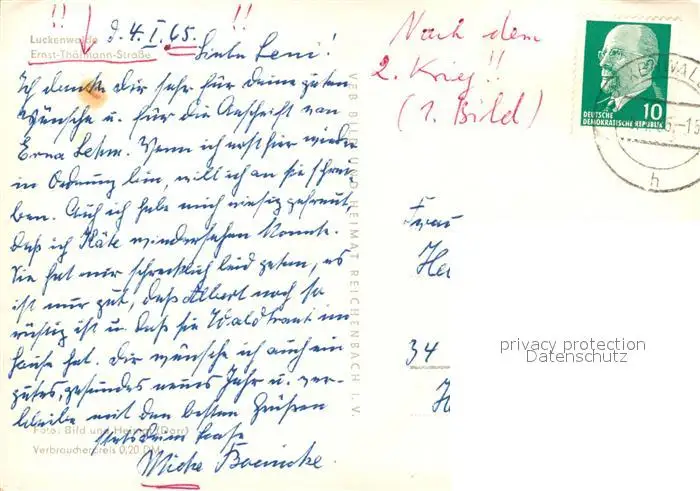 !! !!
Luckenwalde d. 4. I. 65.
Ernst-Thälmann-Straße
Liebe Leni!
Ich danke Dir sehr für Deine guten
Wünsche u. für die Anschrift von
Erna Lehm. Wenn ich erst hier wieder
in Ordnung bin, will ich an sie schrei-
ben. Auch ich habe mich riesig gefreut,
daß ich Käte wiedersehen konnte.
Sie hat mir schrecklich leid getan, es
ist nur gut, daß Albert noch so
rüstig ist u. daß sie Waldtraut im
Hause hat. Dir wünsche ich auch ein
gutes, gesundes neues Jahr u. ver-
bleibe mit den besten Grüßen
Foto: Bild und Heimat (Darr)
stets Deine
Verbraucherpreis 0,20 DM
Micke
VEB BILD UND HEIMAT REICHENBACH I. V.
Nach dem
2. Krieg!!
(1. Bild)
10
DEUTSCHE
DEMOKRATISCHE REPUBLIK
h
Frau
He
34
H
privacy protection
Datenschutz